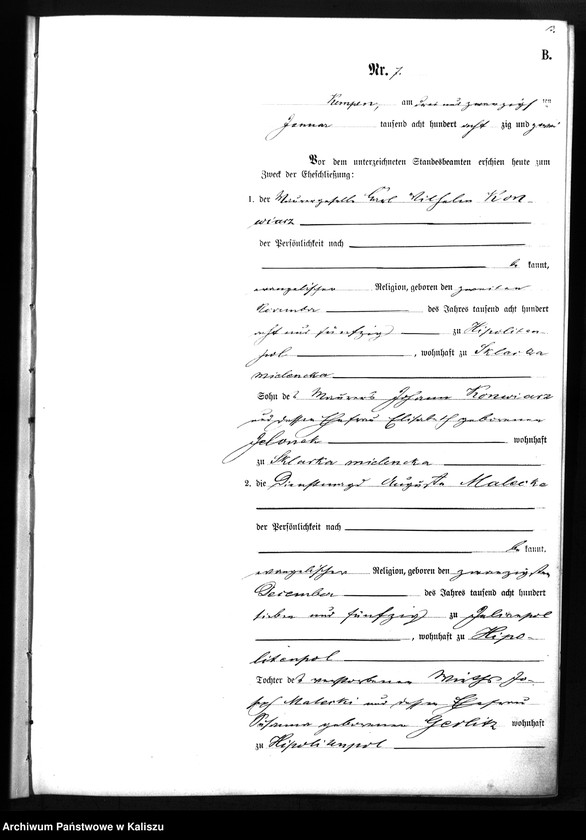 B.
Nr. 7.
Kempen, am drei und zwanzigsten
Januar tausend acht hundert acht zig und zwei
Vor dem unterzeichneten Standesbeamten erschien heute zum
Zweck der Eheschließung:
1. der Maurergeselle Carl Wilhelm Kon-
wiarz
der Persönlichkeit nach
be kannt,
evangelischer Religion, geboren den zweiten
November des Jahres tausend acht hundert
acht und fünfzig zu Hipoliten-
pol, wohnhaft zu Sklarka
mielencka
Sohn des Maurers Johann Konwiarz
und dessen Ehefrau Elisabeth geborenen
Jelonek wohnhaft
zu Sklarka mielencka
2. die Dienstmagd Augusta Malecka
der Persönlichkeit nach
be kannt,
evangelischer Religion, geboren den zwanzigsten
Dezember des Jahres tausend acht hundert
sieben und fünfzig zu Julianpol
, wohnhaft zu Hipo-
litenpol
Tochter des verstorbenen Wirths Jo-
seph Malecki und dessen Ehefrau
Susanna geborenen Gerlitz wohnhaft
zu Hipolitenpol
Archiwum Państwowe w Kaliszu